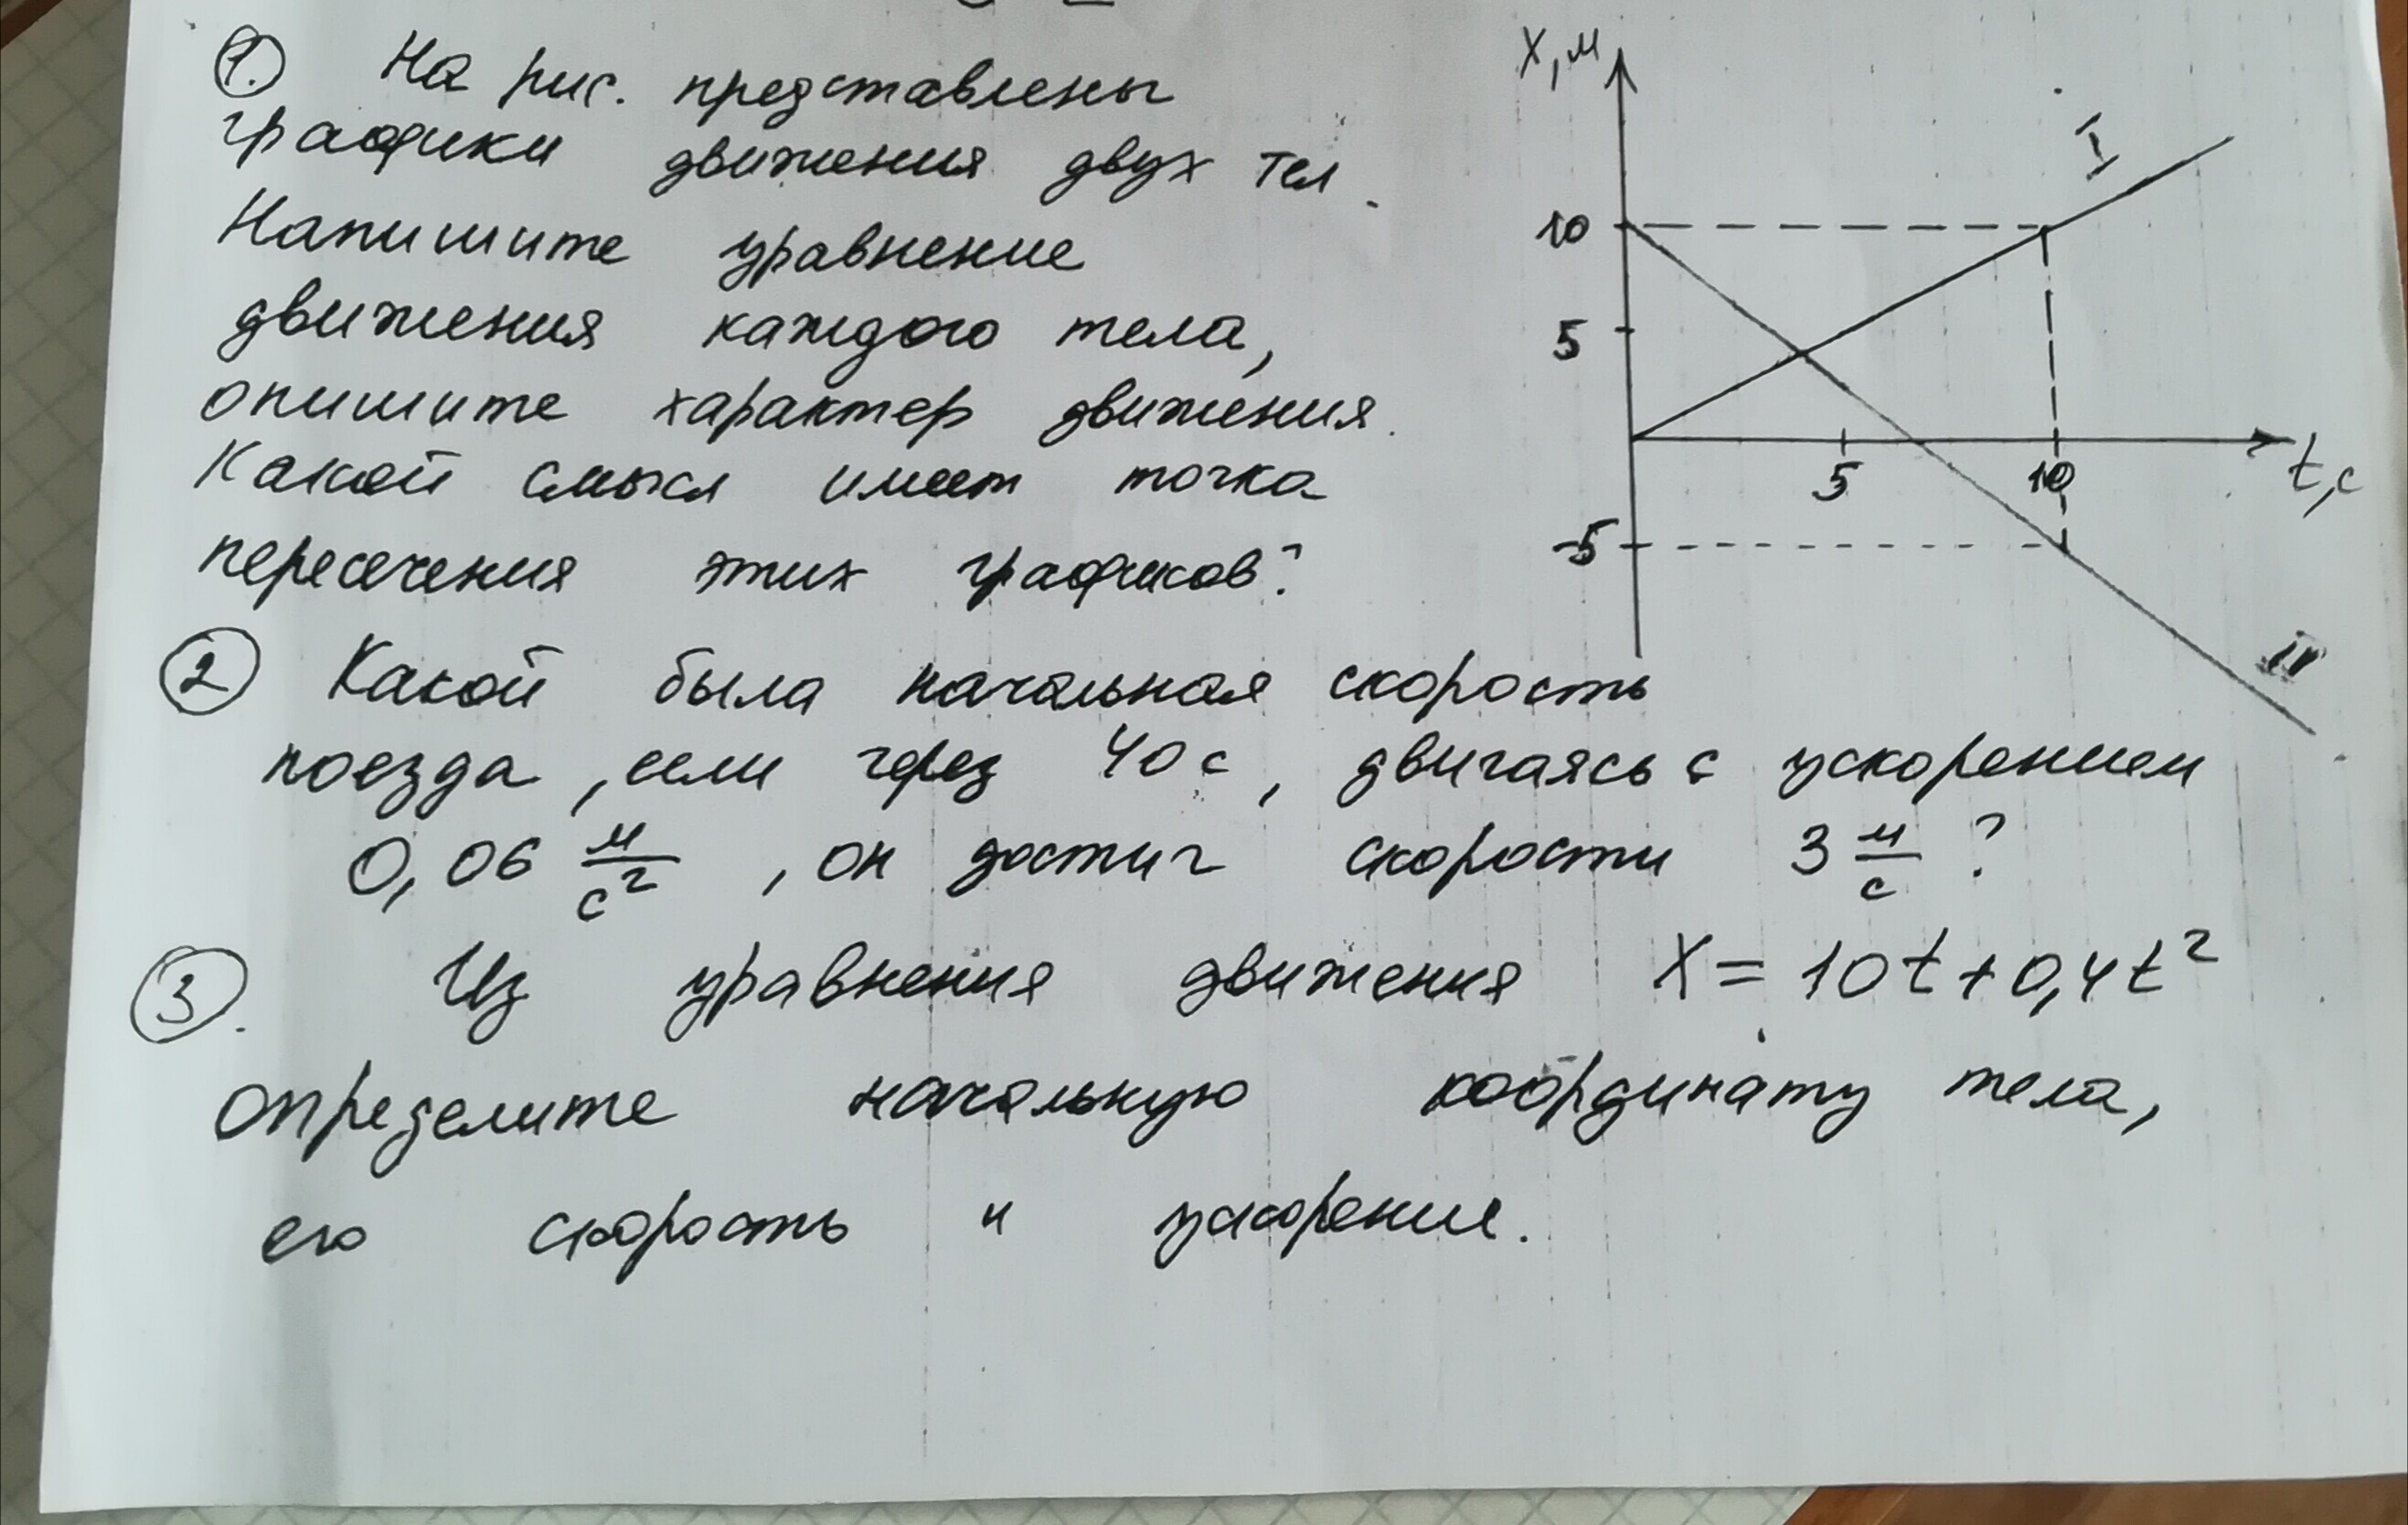 1. На рис. представлены
графики движения двух тел.
Напишите уравнение
движения каждого тела,
опишите характер движения.
Какой смысл имеет точка
пересечения этих графиков?
x, м
I
10
5
5
10
t, с
-5
II
2 Какой была начальная скорость
поезда, если через 40 с, двигаясь с ускорением
0,06 м/с², он достиг скорости 3 м/с?
3. Из уравнения движения X = 10t + 0,4t²
определите начальную координату тела,
его скорость и ускорение.